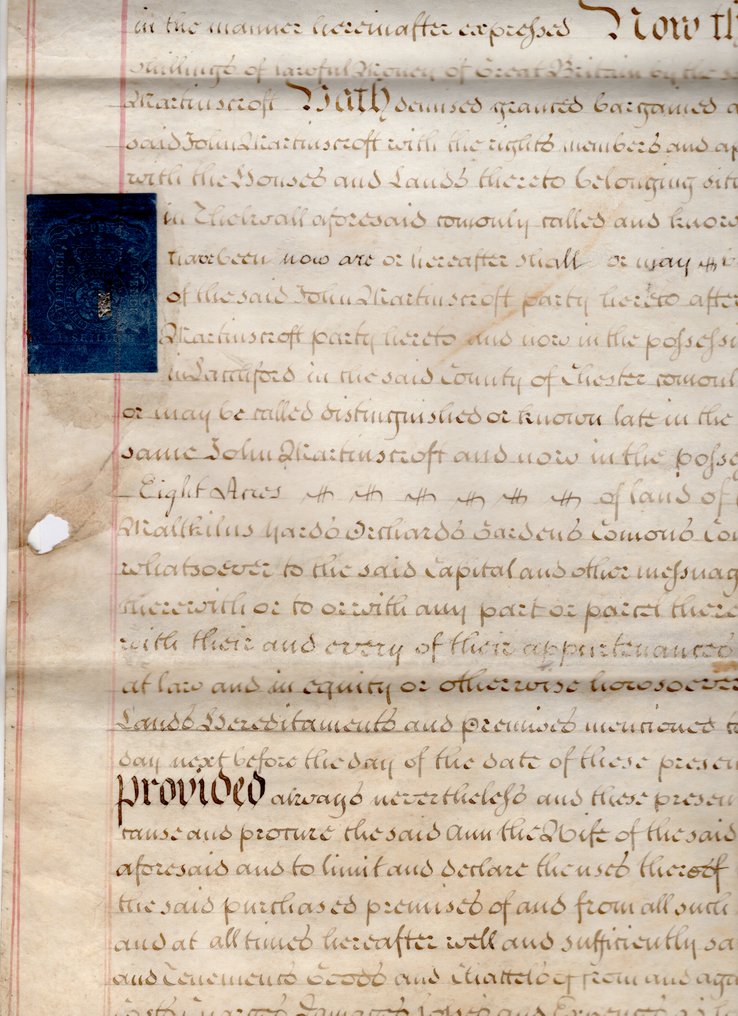 in the manner hereinafter expressed Now th
shillings of lawful Money of Great Britain by the s
Martinscroft Hath demised granted bargained a
said John Martinscroft with the rights members and ap
with the Houses and Lands thereto belonging sit
in Thelwall aforesaid comonly called and know
have been now are or hereafter shall or may be
of the said John Martinscroft party hereto after
Martinscroft party hereto and now in the possessi
in Latchford in the said County of Chester comonl
or may be called distinguished or known late in the
same John Martinscroft and now in the posse
Eight Acres of land of
Malkilns yards Orchards Gardens Comons Co
whatsoever to the said Capital and other messuag
therewith or to or with any part or parcel there
with their and every of their appurtenances
at law and in equity or otherwise howsoever
Lands Hereditaments and premises mentioned t
day next before the day of the date of these presen
provided always nevertheless and these presen
cause and procure the said Ann the Wife of the said
aforesaid and to limit and declare the uses thereof
the said purchased premises of and from all such
and at all times hereafter well and sufficiently sa
and Tenements Goods and Chattels of from and aga
Costs Charges Damages Losses and Expences as